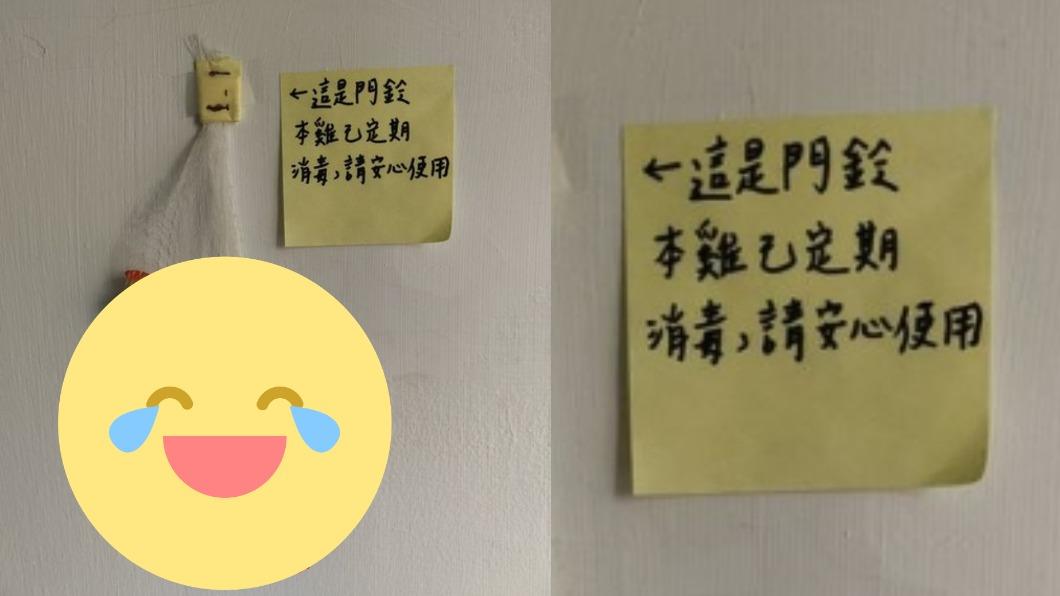 ←這是門鈴
本雞已定期
消毒,請安心使用
←這是門鈴
本雞已定期
消毒,請安心使用